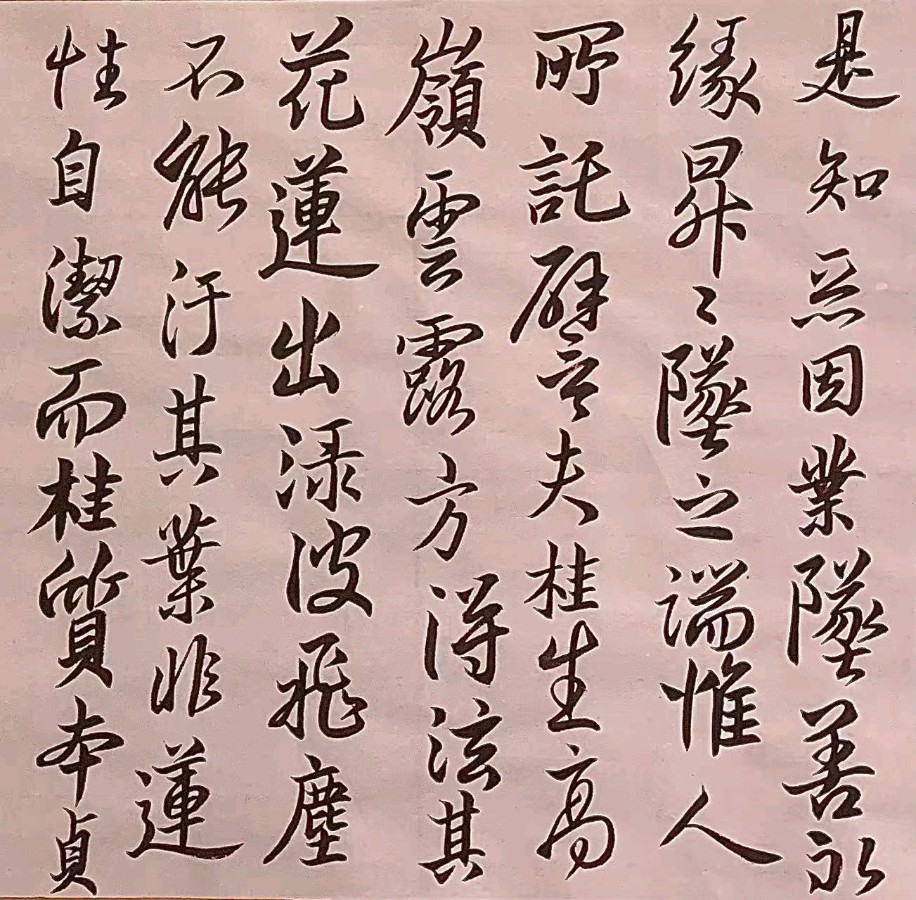 是知惡因業墜善以
緣昇々墜之端惟人
所託譬夫桂生高
嶺雲露方得泫其
花蓮出淥波飛塵
不能汙其葉非蓮
性自潔而桂質本貞